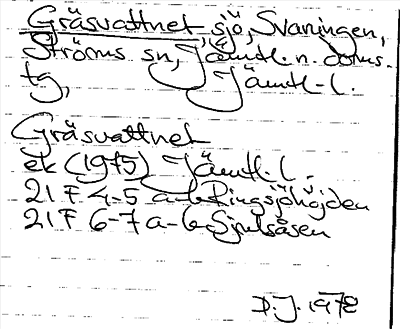 Gräsvattnet, sjö, Svaningen,
Ströms sn, Jämtl. n. doms.
tg, Jämtl. l.
Gräsvattnet
ek (1975) Jämtl. l.
21F 4-5 a-b Ringsjöhöjden
21F 6-7 a-b Sjulsåsen
D.J. 1978